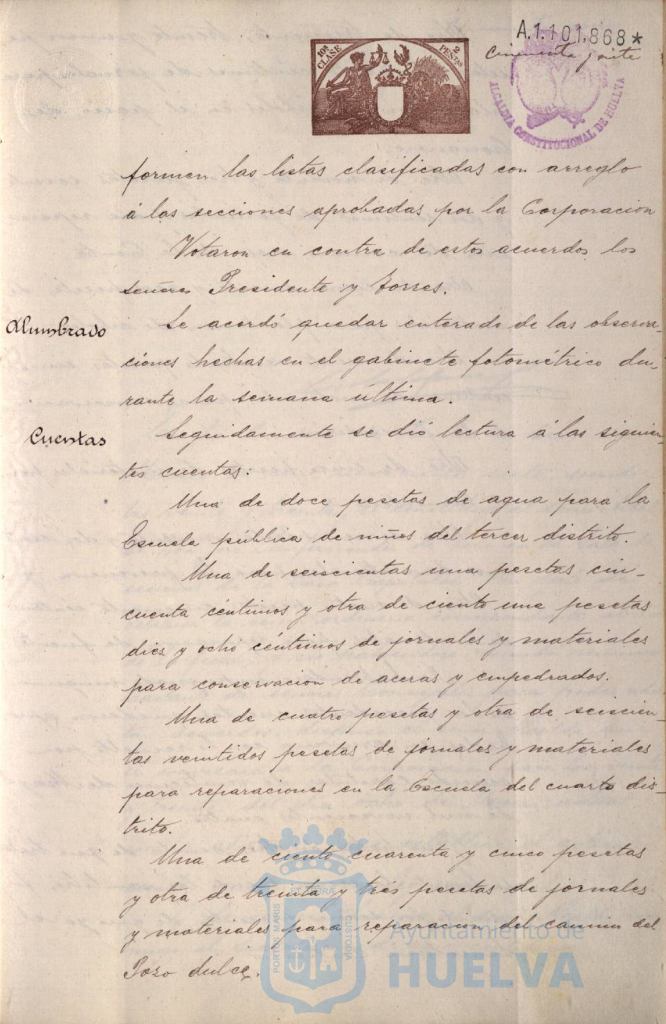 A.1.101.868*
10ª CLASE
2 PESTAS
cincuenta y siete
ALCALDIA CONSTITUCIONAL DE HUELVA
formen las listas clasificadas con arreglo
á las secciones aprobadas por la Corporacion
Votaron en contra de estos acuerdos los
señores Presidente y Torres.
Alumbrado
Se acordó quedar enterado de las observa-
ciones hechas en el gabinete fotométrico du-
rante la semana última.
Cuentas
Seguidamente se dió lectura á las siguien-
tes cuentas:
Una de doce pesetas de agua para la
Escuela pública de niños del tercer distrito.
Una de seiscientas una pesetas cin-
cuenta céntimos y otra de ciento una pesetas
diez y ocho céntimos de jornales y materiales
para conservacion de aceras y empedrados.
Una de cuatro pesetas y otra de seiscien-
tas veintidos pesetas de jornales y materiales
para reparaciones en la Escuela del cuarto dis-
trito.
Una de ciento cuarenta y cinco pesetas
y otra de treinta y tres pesetas de jornales
y materiales para reparacion del camino del
Pozo dulce.
PORTUS MARIS ET TERRAE CUSTODIA
Ayuntamiento de
HUELVA